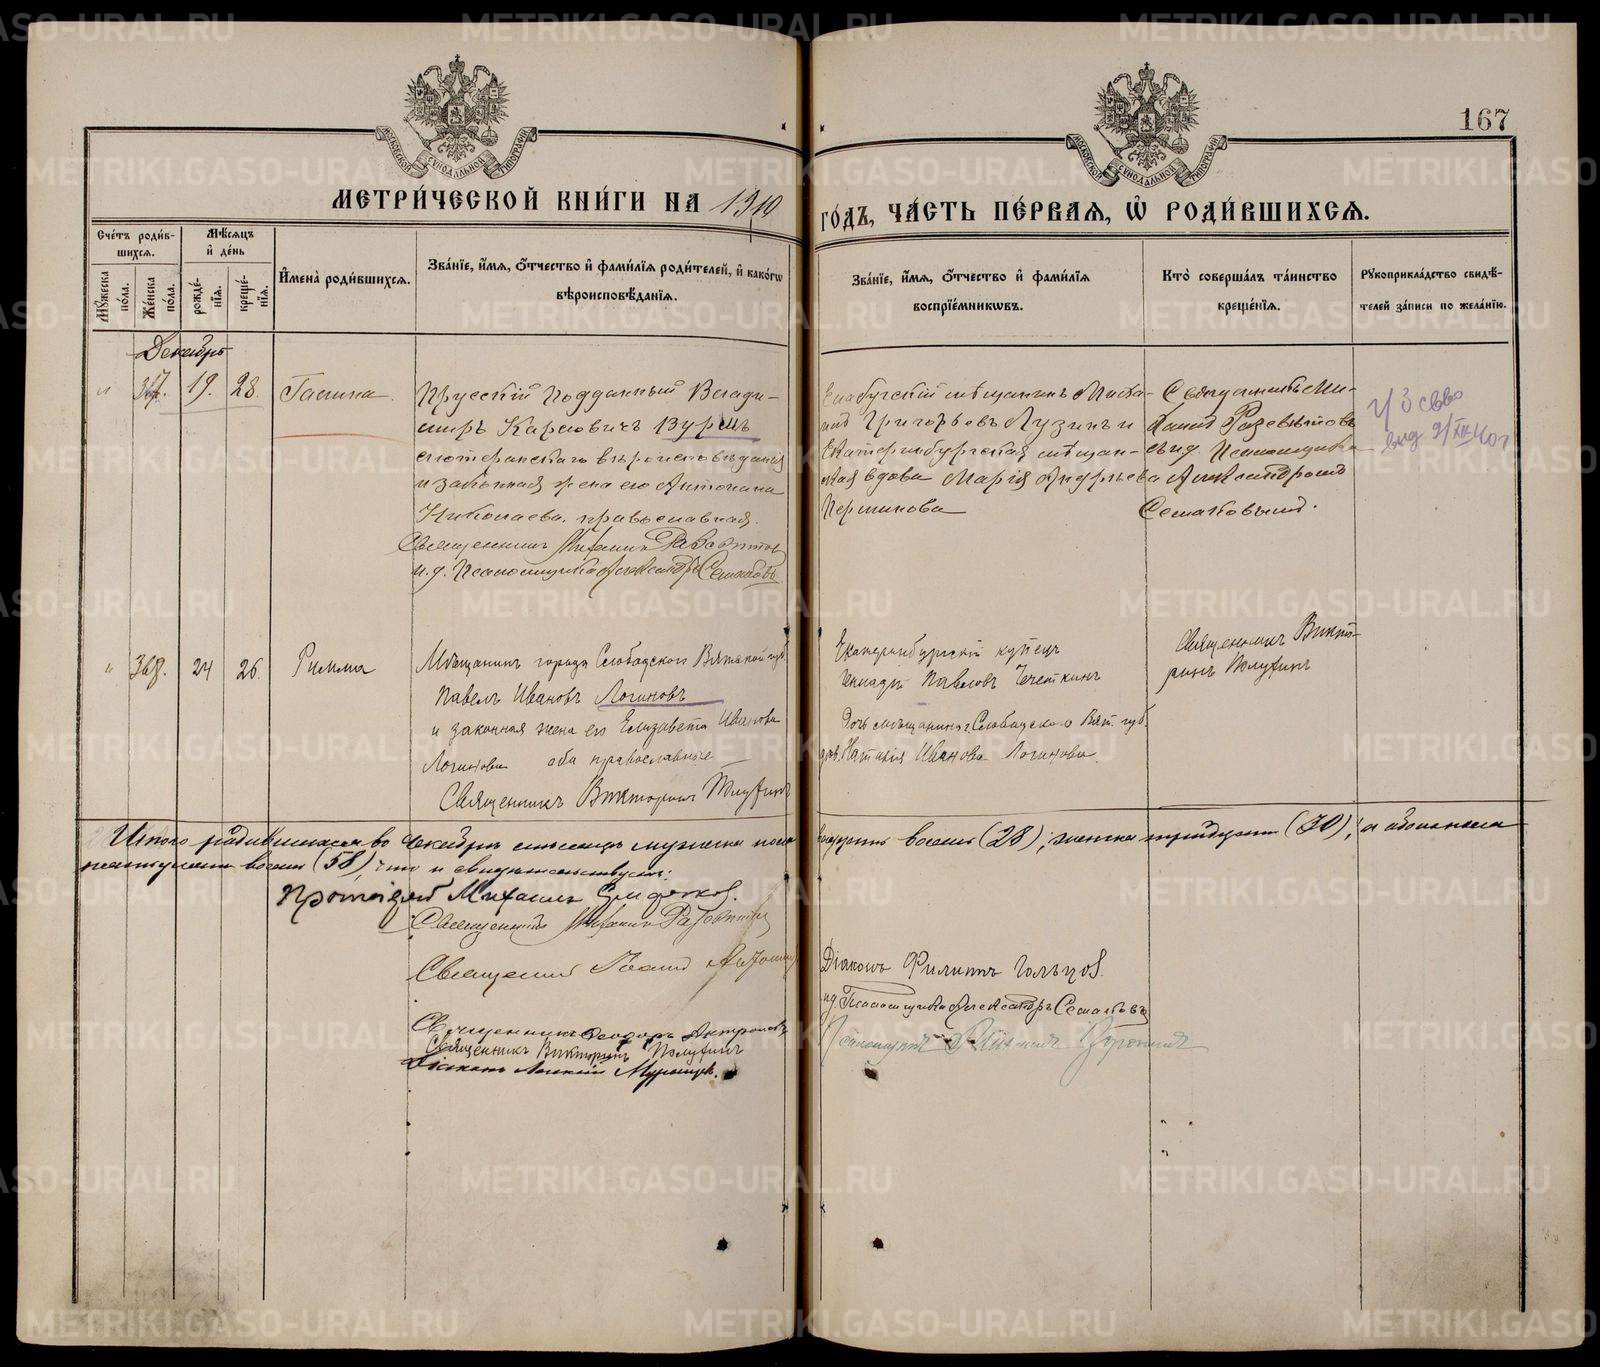 167
МЕТРИ́ЧЕСКОЙ КНИ́ГИ НА 1910
ГО́ДЪ, ЧА́СТЬ ПЕ́РВАЯ, Ѡ҆ РОДИ́ВШИХСЯ.
Сче́тъ роди́в-
шихся.
Мѣ́сяцъ
и҆ де́нь
Мꙋ́жеска по́ла.
Же́нска по́ла.
рожде́-нїя.
креще́-нїя.
И҆мена̀ роди́вшихся.
Зва́нїе, и҆́мя, ѻ҆́тчество и҆ фами́лїя роди́телей, и҆ како́гѡ
вѣроисповѣ́данїя.
Зва́нїе, и҆́мя, ѻ҆́тчество и҆ фами́лїя
воспрїе́мникѡвъ.
Кто̀ соверша́лъ та́инство
креще́нїя.
Рꙋкоприкла́дство свидѣ́-
телей за́писи по жела́нїю.
Декабрь
" 367. 19. 28. Галина
Прусскій подданный Влади-
миръ Карловичъ Вурмъ
лютеранскаго вѣроисповѣданія
и законная жена его Антонина
Николаева, православная.
Священникъ Михаилъ
и.д. Псаломщика Александръ Семаковъ
Елабужскій мѣщанинъ
Григорьевъ Лузинъ и
Екатеринбургская мѣщан-
ская вдова Марія Андреева
Першикова
Священникъ Ми-
хаилъ
и и.д. Псаломщика
Александромъ
Семаковымъ.
" 368. 24 26. Римма
Мѣщанинъ города Слободского Вятской губ
Павелъ Ивановъ Логиновъ
и законная жена его Елизавета Иванова
Логинова оба православные
Священникъ Викторинъ Полухинъ
Екатеринбургскій купецъ
Павловъ Чечеткинъ
Дочь мѣщанина г. Слободского Вят губ.
дѣв. Наталія Иванова Логинова.
Священникъ Викто-
ринъ Полухинъ
Итого родившихся во декабрѣ мѣсяцѣ мужеска пола
двадцать восемь (28), женска тридцать (30), а обоего пола
пятьдесятъ восемь (58), что и свидѣтельствуемъ:
Протоіерей Михаилъ
Священникъ Михаилъ
Священникъ Іоаннъ
Священникъ Ѳеодоръ Антроповъ
Священникъ Викторинъ Полухинъ
Діаконъ Алексій
Діаконъ Филиппъ Гольцов.
и.д. Псаломщика Александръ Семаковъ
Псаломщикъ
METRIKI.GASO-URAL.RU